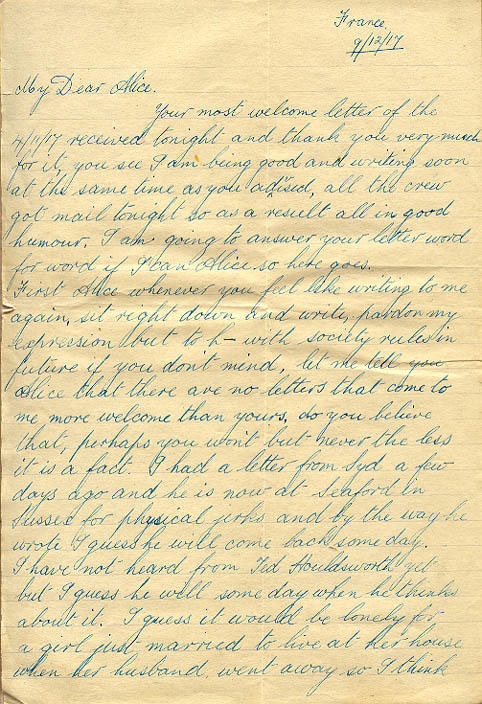 France.
9/12/17
My Dear Alice.
Your most welcome letter of the
4/11/17 received tonight and thank you very much
for it, you see I am being good and writing soon
at the same time as you advised, all the crew
got mail tonight so as a result all in good
humour. I am going to answer your letter word
for word if I can Alice so here goes.
First Alice whenever you feel like writing to me
again, sit right down and write, pardon my
expression but to h— with society rules in
future if you don't mind, let me tell you
Alice that there are no letters that come to
me more welcome than yours, do you believe
that, perhaps you won't but never the less
it is a fact. I had a letter from Syd a few
days ago and he is now at Seaford in
Sussex for physical jerks and by the way he
wrote I guess he will come back some day.
I have not heard from Ted Houldsworth yet
but I guess he will some day when he thinks
about it. I guess it would be lonely for
a girl just married to live at her house
when her husband went away so I think